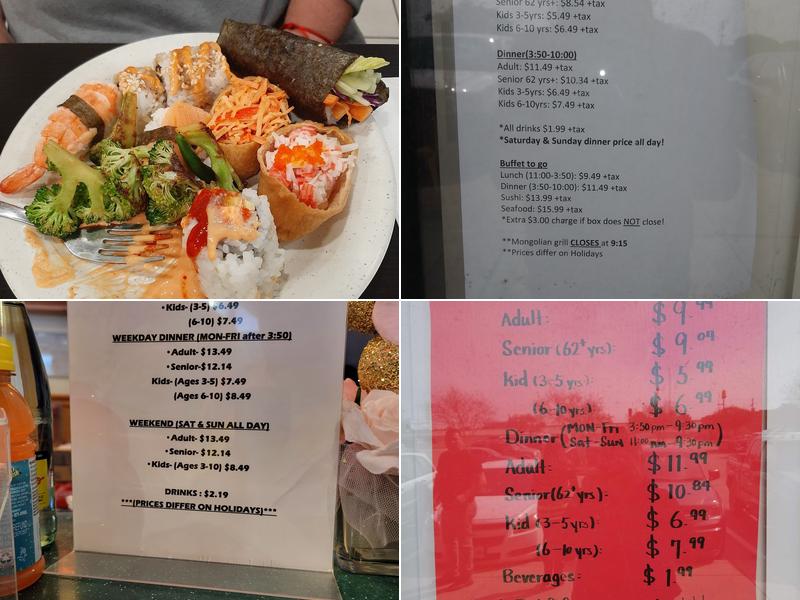 Senior 62 yrs+: $8.54 +tax
Kids 3-5yrs: $5.49 +tax
Kids 6-10 yrs: $6.49 +tax
Dinner(3:50-10:00)
Adult: $11.49 +tax
Senior 62 yrs+: $10.34 +tax
Kids 3-5yrs: $6.49 +tax
Kids 6-10yrs: $7.49 +tax
*All drinks $1.99 +tax
*Saturday & Sunday dinner price all day!
Buffet to go
Lunch (11:00-3:50): $9.49 +tax
Dinner (3:50-10:00): $11.49 +tax
Sushi: $13.99 +tax
Seafood: $15.99 +tax
*Extra $3.00 charge if box does NOT close!
**Mongolian grill CLOSES at 9:15
**Prices differ on Holidays
•Kids- (3-5) $6.49
(6-10) $7.49
WEEKDAY DINNER (MON-FRI after 3:50)
•Adult- $13.49
•Senior-$12.14
Kids- (Ages 3-5) $7.49
(Ages 6-10) $8.49
WEEKEND (SAT & SUN ALL DAY)
•Adult- $13.49
•Senior- $12.14
•Kids- (Ages 3-10) $8.49
DRINKS : $2.19
***(PRICES DIFFER ON HOLIDAYS)***
Adult: $9.99
Senior (62+yrs): $9.09
Kid (3-5yrs): $5.99
(6-10yrs) $6.99
Dinner (MON-Fri 3:50pm-9:30pm
Sat-Sun 11:00am-9:30pm)
Adult: $11.99
Senior(62+yrs): $10.89
Kid (3-5yrs): $6.99
(6-10yrs): $7.99
Beverages: $1.99